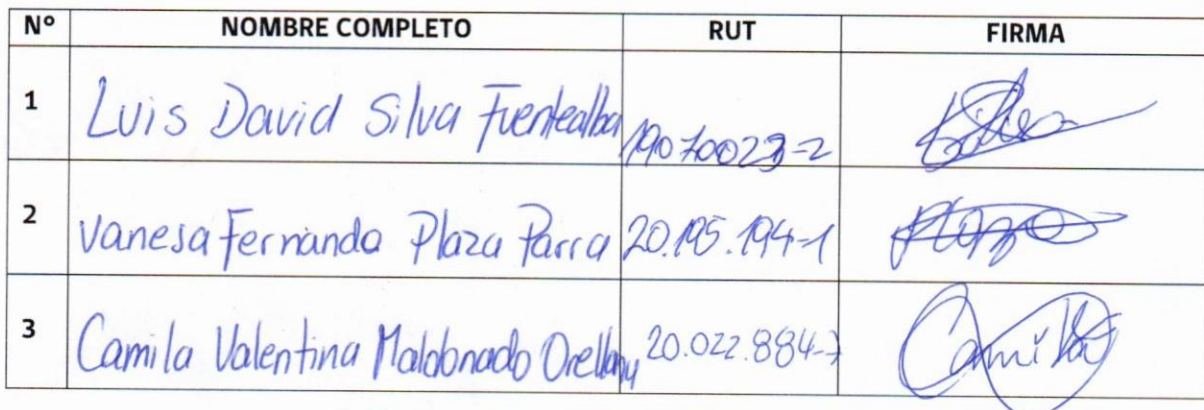 N° NOMBRE COMPLETO RUT FIRMA
1 Luis David Silva Fuentealba 19070023-2
2 Vanesa Fernanda Plaza Parra 20.195.194-1 Plaza
3 Camila Valentina Maldonado Orellana 20.022.884-7 Camila